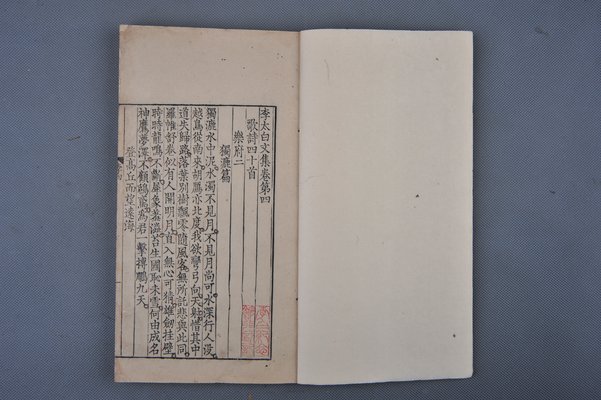 李太白文集卷第四
歌詩四十首
樂府二
獨漉篇
獨漉水中泥水濁不見月不見月尚可水深行人沒
越鳥從南來胡鴈亦北度我欲彎弓向天射惜其中
道失歸路落葉別樹飄零隨風客無所託悲與此同
羅帷舒卷似有人開明月直入無心可猜雄劍挂壁
時時龍鳴不斷犀象羞澁苔生國恥未雪何由成名
神鷹夢澤不顧鴟鳶為君一擊搏鵬九天
登高丘而望遠海